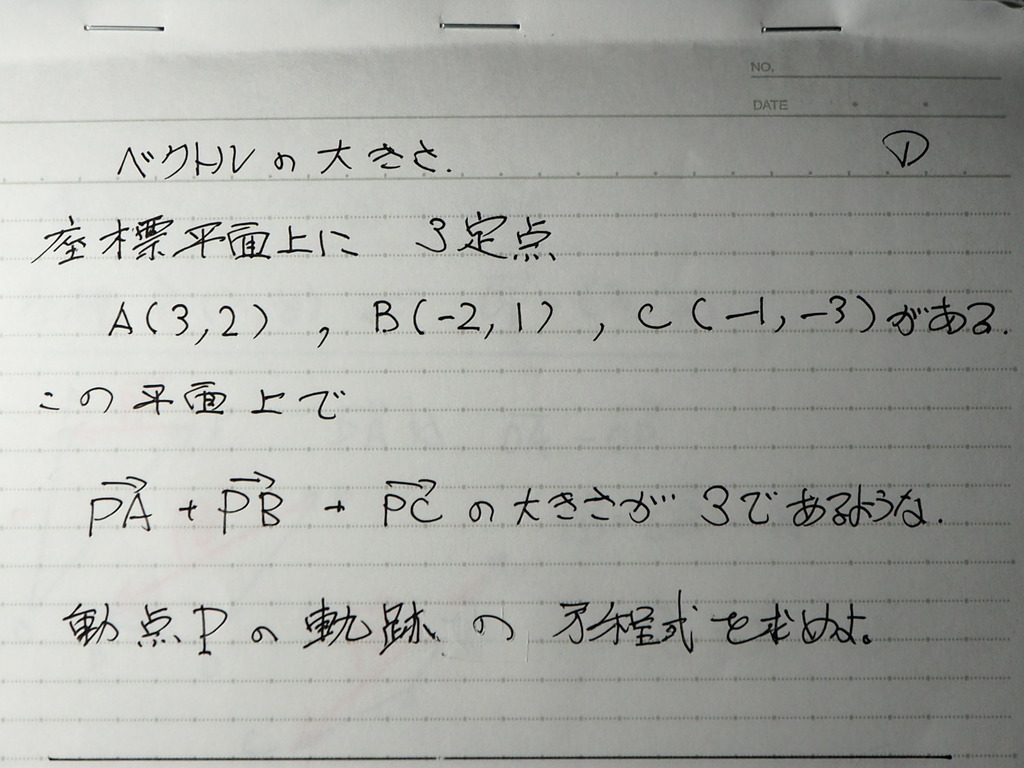 NO.
DATE
ベクトルの大きさ. ①
座標平面上に 3定点
A(3,2), B(-2,1), C(-1,-3)がある.
この平面上で
→PA + →PB + →PC の大きさが 3であるような.
動点Pの軌跡の方程式を求めよ。